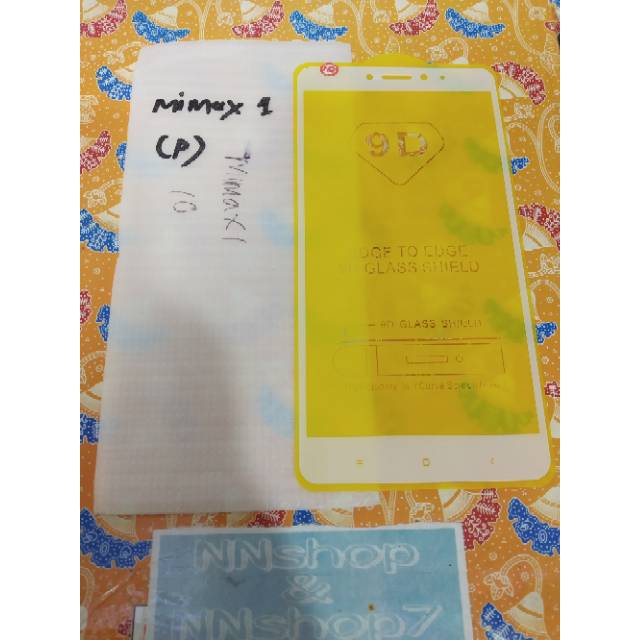 Mimax 1
(P)
Mimax1
10
9D
EDGE TO EDGE
9D GLASS SHIELD
9D GLASS SHIELD
NNshop
&
NNshop7